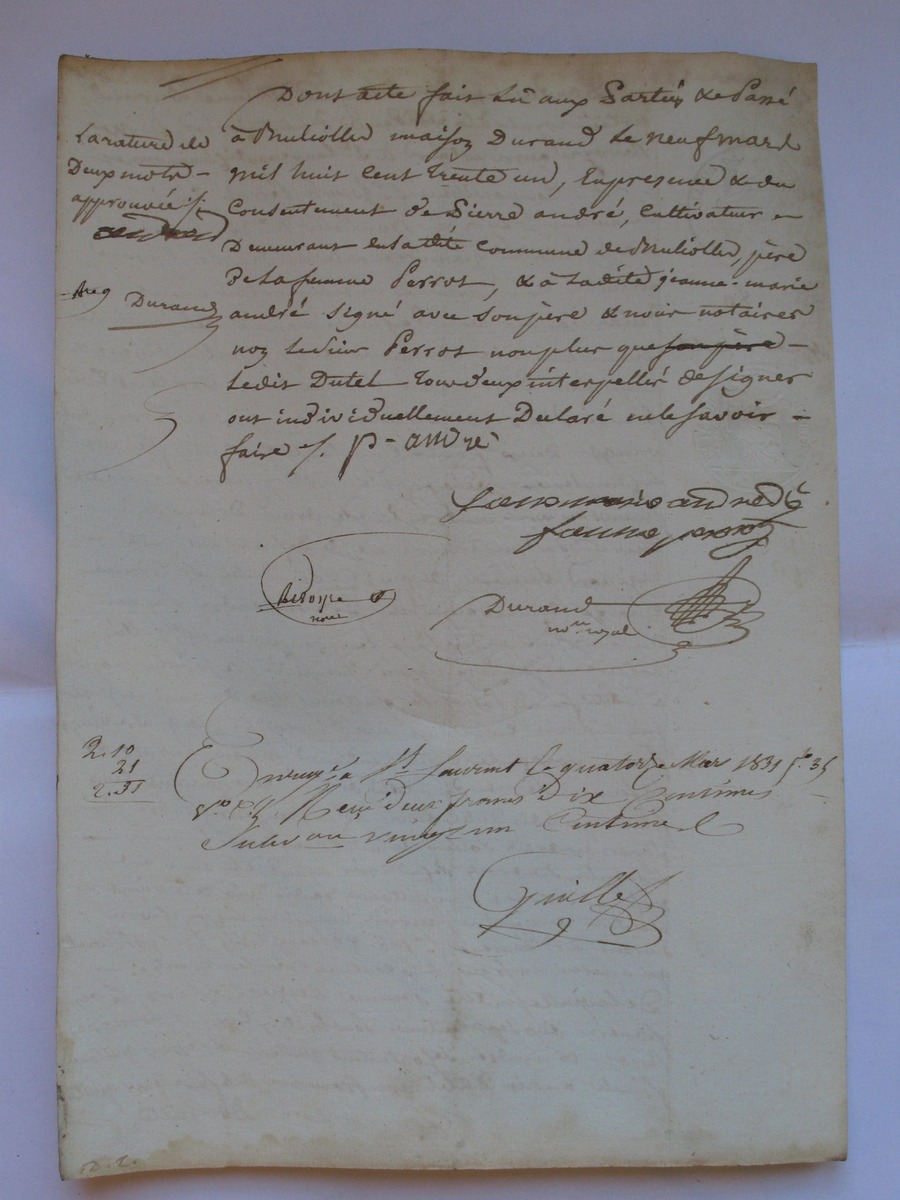 Dont acte fait Lû aux Parties & Passé
à Nuliolles maison Durand Le neuf mars
mil huit cent trente un, En presence & du
Consentement de Pierre andré, Cultivateur
Demeurant en ladite Commune de Nuliolles, père
De la femme Perrot, & à Ladite jeanne-marie
andré Signé avec son père & nous notaires
non le sieur Perrot non plus que son père
Ledit Dutel Tous deux interpellés de signer
ont individuellement Declaré ne le savoir
faire ./. p-andré
La rature de
Deux mots
approuvée ./.
andré
Durand
jeanne marie andre
famme perrot
Durand
no.re royal
2.10
21
2.31
Enreg.é à S.t Laurent le quatorze Mars 1831 f.o 35
v.o Reçu deux francs dix Centimes
Subv.on vingt un Centimes